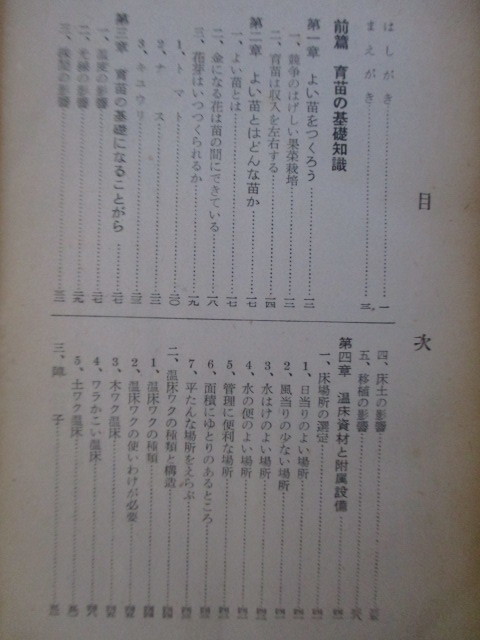 目次
はしがき……一
まえがき……三
前篇 育苗の基礎知識
第一章 よい苗をつくろう……一二
一、競争のはげしい果菜栽培……一二
二、育苗は収入を左右する……一四
第二章 よい苗とはどんな苗か……一七
一、よい苗とは……一七
二、金になる花は苗の間にできている……一八
三、花芽はいつつくられるか……一九
1、トマト……二〇
2、ナス……二二
3、キユウリ……二三
第三章 育苗の基礎になることがら……二七
一、温度の影響……二七
二、光線の影響……二九
四、床土の影響
五、移植の影響
第四章 温床資材と附属設備
一、床場所の選定
1、日当りのよい場所
2、風当りの少ない場所
3、水はけのよい場所
4、水の便のよい場所
5、管理に便利な場所
6、面積にゆとりのあるところ
7、平たんな場所をえらぶ
二、温床ワクの種類と構造
1、温床ワクの種類
2、温床ワクの使いわけが必要
3、木ワク温床
4、ワラかこい温床
5、土ワク温床
三、障子